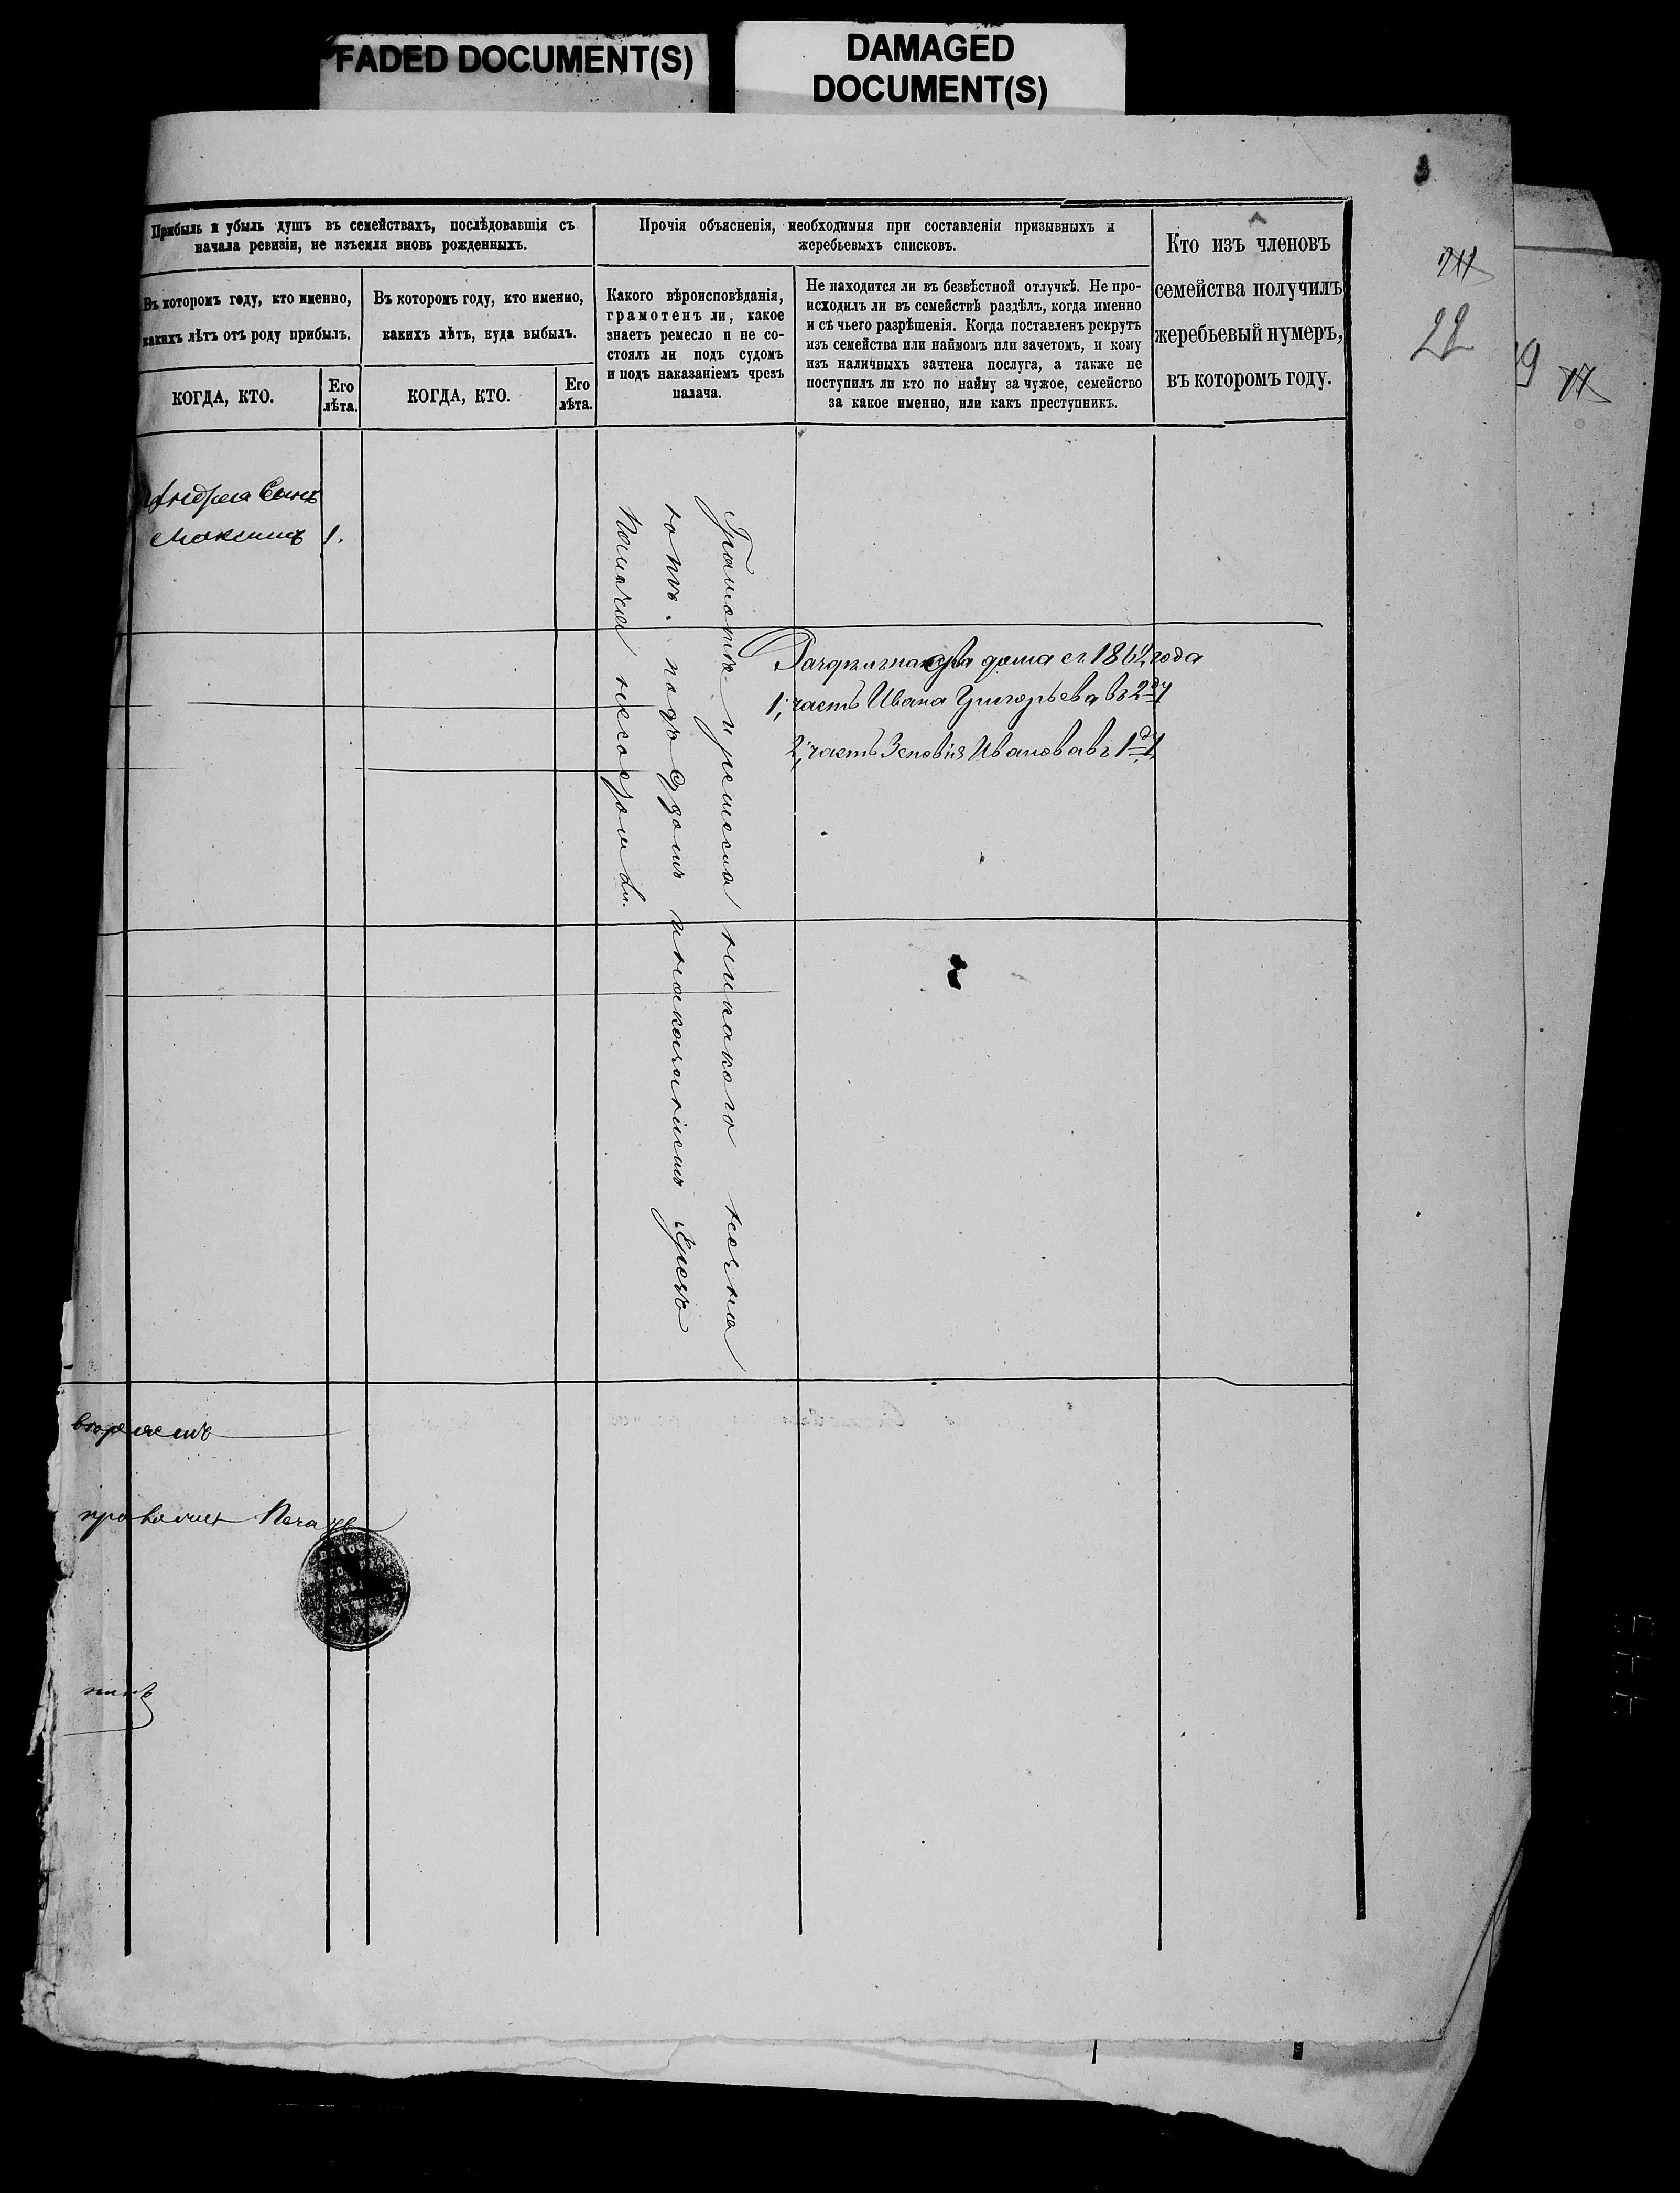 FADED DOCUMENT(S)
DAMAGED
DOCUMENT(S)
Прибыль и убыль душъ въ семействахъ, послѣдовавшія съ
начала ревизіи, не изъемля вновь рожденныхъ.
Въ которомъ году, кто именно,
какихъ лѣтъ отъ роду прибылъ.
КОГДА, КТО.
Его
лѣта.
Въ которомъ году, кто именно,
какихъ лѣтъ, куда выбылъ.
КОГДА, КТО.
Его
лѣта.
Прочія объясненія, необходимыя при составленіи призывныхъ и
жеребьевыхъ списковъ.
Какого вѣроисповѣданія,
грамотенъ ли, какое
знаетъ ремесло и не со-
стоялъ ли подъ судомъ
и подъ наказаніемъ чрезъ
палача.
Не находится ли въ безвѣстной отлучкѣ. Не про-
исходилъ ли въ семействѣ раздѣлъ, когда именно
и съ чьего разрѣшенія. Когда поставленъ рекрутъ
изъ семейства или наймомъ или зачетомъ, и кому
изъ наличныхъ зачтена послуга, а также не
поступилъ ли кто по найму за чужое, семейство
за какое именно, или какъ преступникъ.
Кто изъ членовъ
семейства получилъ
жеребьевый нумеръ,
въ которомъ году.
22
19
17
Андрея Сынъ
Максимъ 1.
Грамотѣ и ремесла никакого незна
ютъ. подъ Судомъ и наказаніемъ Чрезъ
Палача несостояли.
два дома съ 1862 года
1, часть Ивана Григорьева въ 2 д.
2, часть Зеновія Иванова въ 1 д.